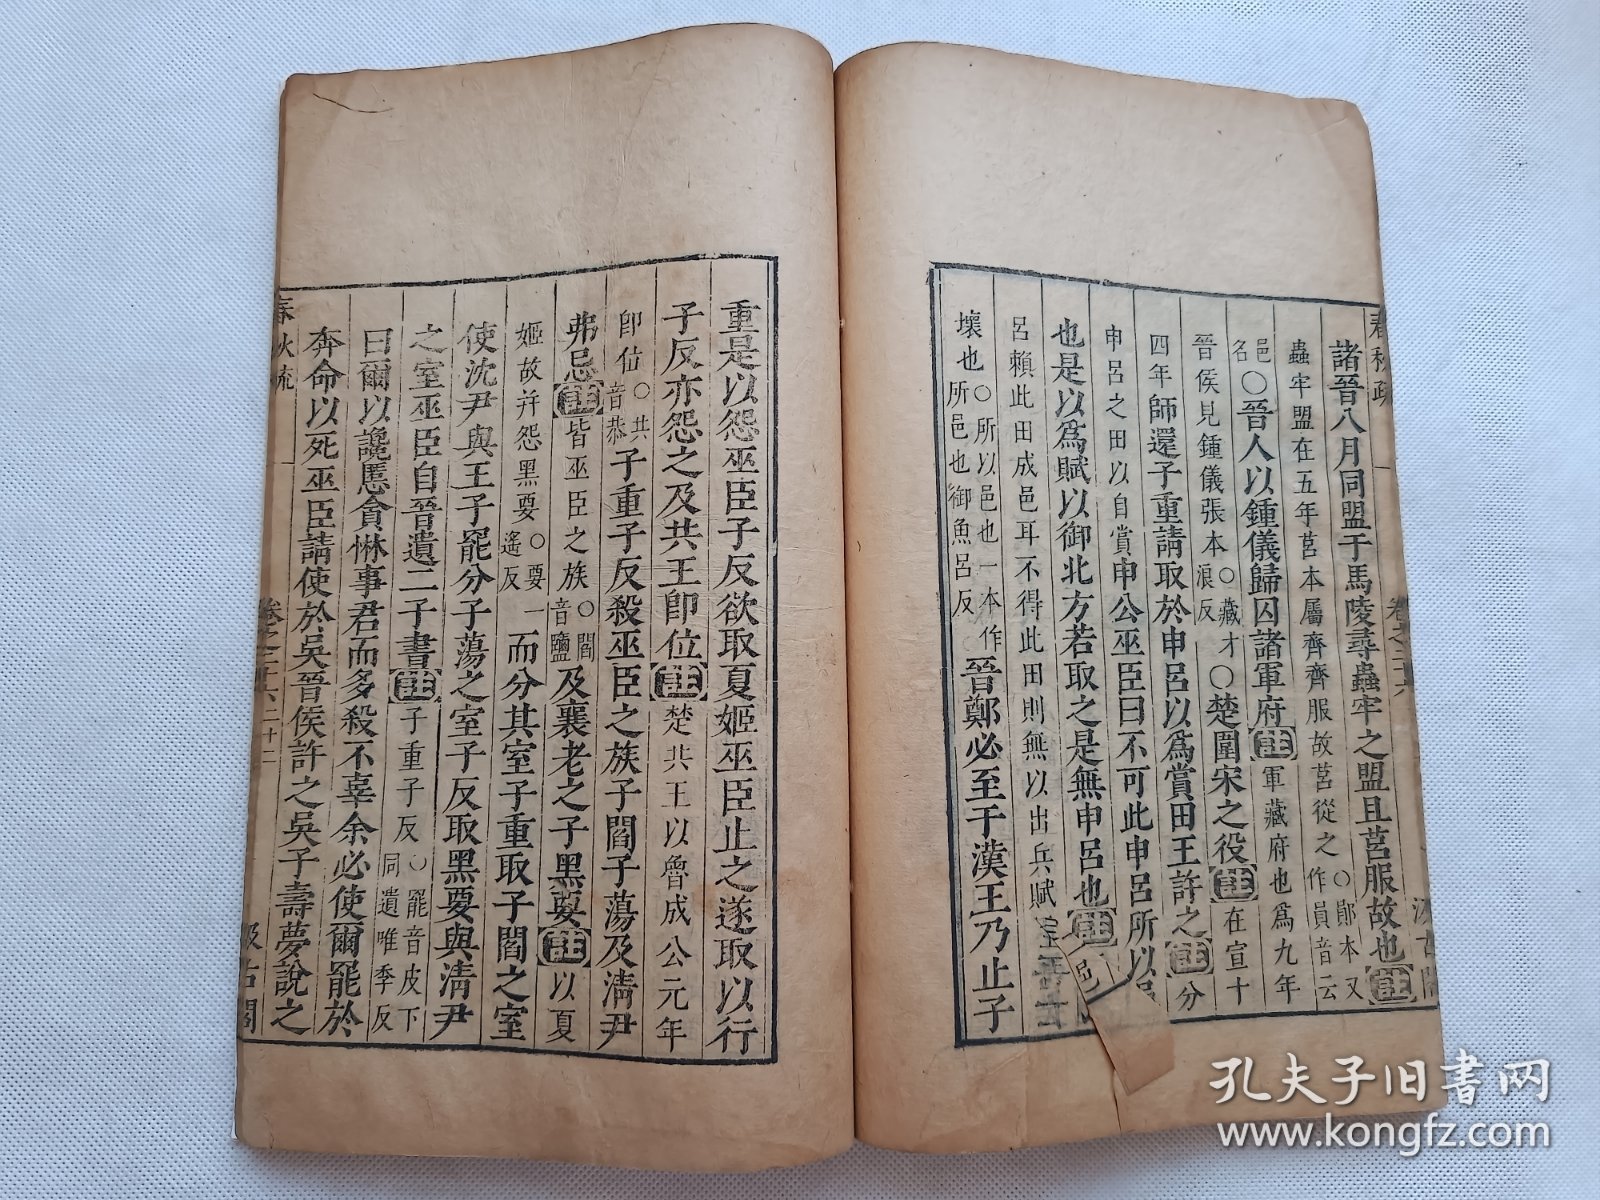 春秋疏
卷之二十六
汲古閣
諸晉八月同盟于馬陵尋蟲牢之盟且莒服故也註
蟲牢盟在五年莒本屬齊齊服故莒從之○鄖本又作員音云
邑名○晉人以鍾儀歸囚諸軍府註軍藏府也爲九年
晉侯見鍾儀張本○藏才浪反○楚圍宋之役註在宣十
四年師還子重請取於申呂以爲賞田王許之註分
申呂之田以自賞申公巫臣曰不可此申呂所以邑
也是以爲賦以御北方若取之是無申呂也註
呂賴此田成邑耳不得此田則無以出兵賦
壞也○所以邑也一本作所邑也御魚呂反晉鄭必至于漢王乃止子
重是以怨巫臣子反欲取夏姬巫臣止之遂取以行
子反亦怨之及共王卽位註楚共王以魯成公元年
卽位○共音恭子重子反殺巫臣之族子閻子蕩及淸尹
弗忌註皆巫臣之族○閻音鹽及襄老之子黑要註以夏
姬故幷怨黑要○要一遙反而分其室子重取子閻之室
使沈尹與王子罷分子蕩之室子反取黑要與淸尹
之室巫臣自晉遺二子書註子重子反○罷音皮下同遺唯季反
曰爾以讒慝貪惏事君而多殺不辜余必使爾罷於
奔命以死巫臣請使於吳晉侯許之吳子壽夢說之
春秋疏
卷之二十六
二十二
汲古閣
孔夫子旧书网
www.kongfz.com